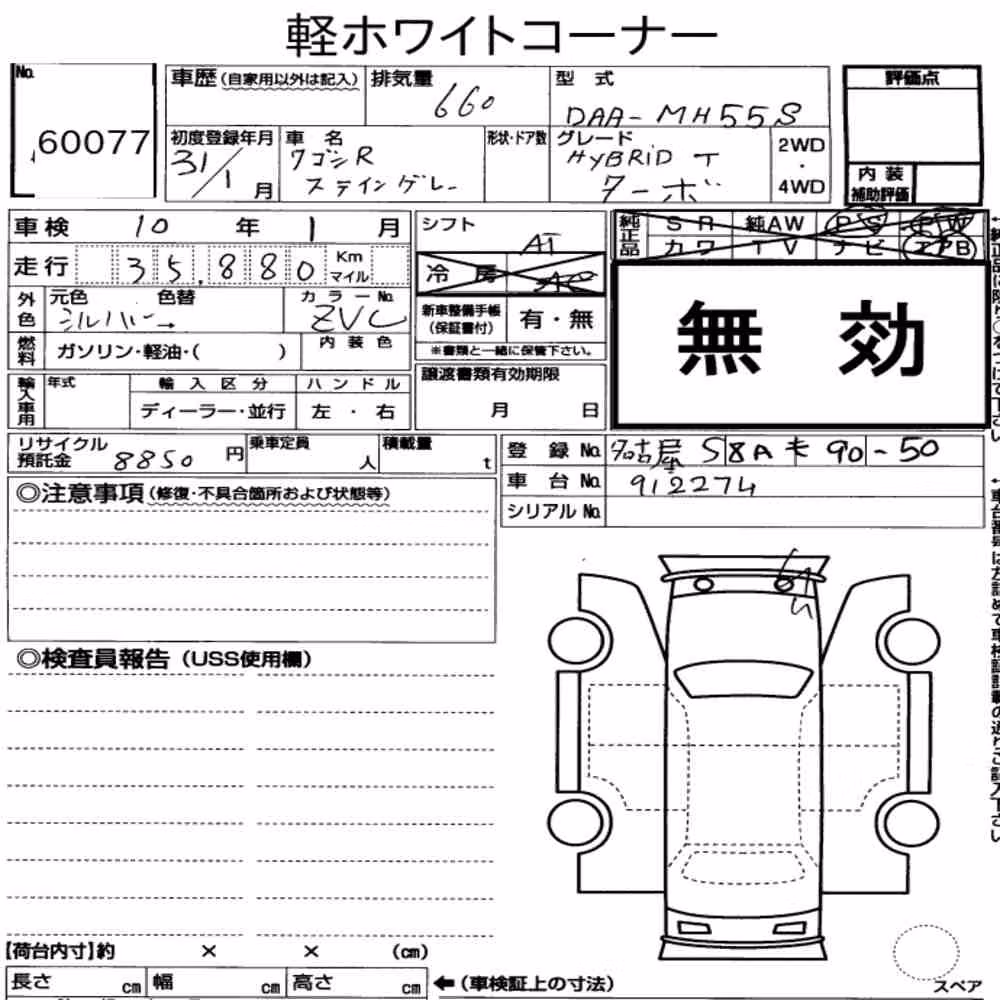 軽ホワイトコーナー
No.
60077
車歴(自家用以外は記入)
排気量
660
型 式
DAA-MH55S
評価点
初度登録年月
31/1月
車 名
ワゴンR
スティングレー
形状・ドア数
グレード
HYBRID T
ターボ
2WD
・
4WD
内 装
補助評価
車検 10 年 1 月
シフト
AT
純正品
S R 純AW P S P W
カワ T V ナビ エアB
走行 35,880 Km
マイル
冷 房
AC
外色
元色 色替
シルバー→
カラーNo.
ZVC
新車整備手帳
(保証書付)
有・無
無 効
燃料
ガソリン・軽油・( )
内装色
※書類と一緒に保管下さい。
輸入車用
年式
輸入区分
ハンドル
ディーラー・並行
左 ・ 右
譲渡書類有効期限
月 日
リサイクル
預託金 8850 円
乗車定員
人
積載量
t
登 録 No. 名古屋 58A モ 90-50
車 台 No. 912274
シリアル No.
◎注意事項(修復・不具合箇所および状態等)
◎検査員報告(USS使用欄)
【荷台内寸】約 × × (cm)
長さ cm 幅 cm 高さ cm
←(車検証上の寸法)
スペア